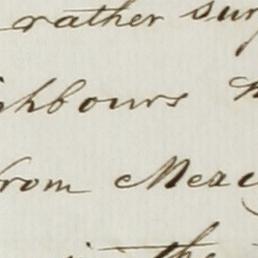 rather sur
ghbours
from Meac
in the